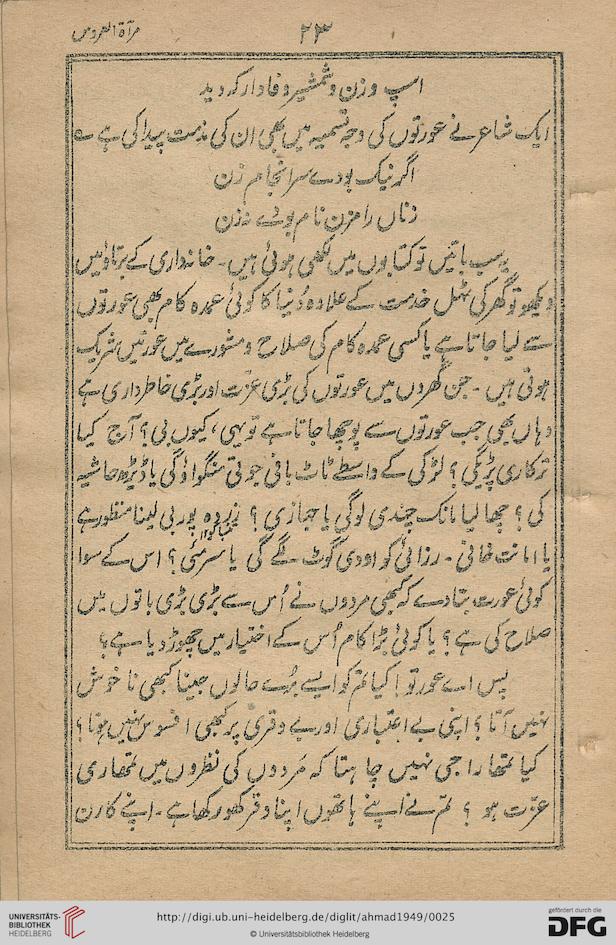 مرآۃ العروس
۲۳
اسپ و زن و شمشیر وفادار کہ دید
ایک شاعر نے عورتوں کی وجہ تسمیہ میں بھی ان کی مذمت پیدا کی ہے ؎
اگر نیک بودے سرانجام زن
زناں را مزن نام بودے نہ زن
یہ سب باتیں تو کتابوں میں لکھی ہوئی ہیں۔ خانہ داری کے برتاؤ میں
دیکھو تو گھر کی ٹہل خدمت کے علاوہ دُنیا کا کوئی عمدہ کام بھی عورتوں
سے لیا جاتا ہے یا کسی عمدہ کام کی صلاح و مشورے میں عورتیں شریک
ہوتی ہیں۔ جن گھروں میں عورتوں کی بڑی عزّت اور بڑی خاطر داری ہے
وہاں بھی جب عورتوں سے پوچھا جاتا ہے تو یہی، کیوں بی؟ آج کیا
ترکاری پڑیگی؟ لڑکی کے واسطے ٹاٹ بافی جوتی منگواؤ گی یا ڈیڑھ حاشیہ
کی؟ چھالیا مانک چندی لوگی یا جہازی؟ زردہ پوربی لینا منظور ہے
یا امانت خانی۔ رزائی کو اودی گوٹ لگے گی یا سرمئی؟ اس کے سوا
کوئی عورت بتا دے کہ کبھی مردوں نے اُس سے بڑی بڑی باتوں میں
صلاح کی ہے؟ یا کوئی بڑا کام اُس کے اختیار میں چھوڑ دیا ہے؟
پس اے عورتو! کیا تم کو ایسے بُرے حالوں جینا کبھی نا خوش
نہیں آتا؟ اپنی بے اعتباری اور بے وقری پر کبھی افسوس نہیں ہوتا؟
کیا تمھارا جی نہیں چاہتا کہ مَردوں کی نظروں میں تمھاری
عزّت ہو؟ تم نے اپنے ہاتھوں اپنا وقر کھو رکھا ہے۔ اپنے کارن
UNIVERSITÄTS-
BIBLIOTHEK
HEIDELBERG
http://digi.ub.uni-heidelberg.de/diglit/ahmad1949/0025
© Universitätsbibliothek Heidelberg
gefördert durch die
DFG